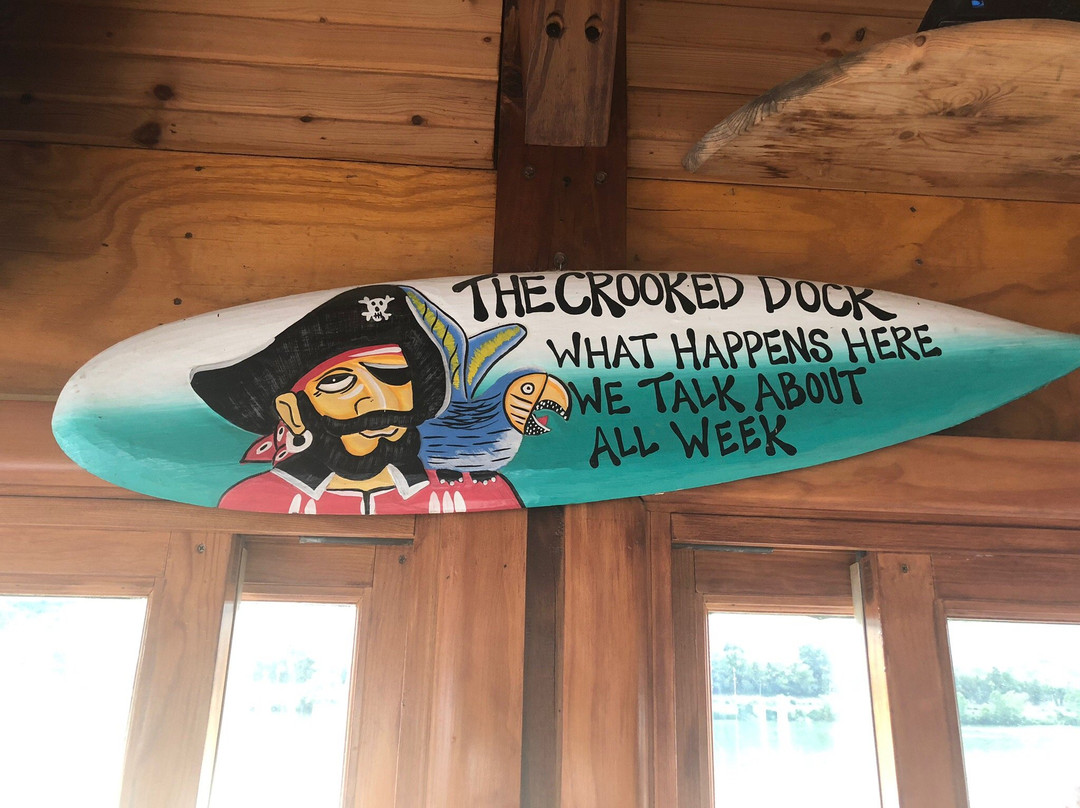 THE CROOKED DOCK
WHAT HAPPENS HERE
WE TALK ABOUT
ALL WEEK